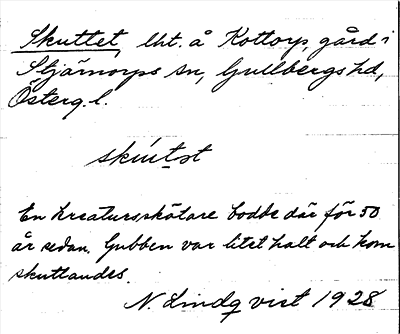 Skuttet, lht. å Kottorp, gård i
Stjärnorps sn, Gullbergs hd,
Österg. l.
skút:st
En kreatursskötare bodde där för 50
år sedan. Gubben var litet halt och kom
skuttandes.
N. Lindqvist 1928